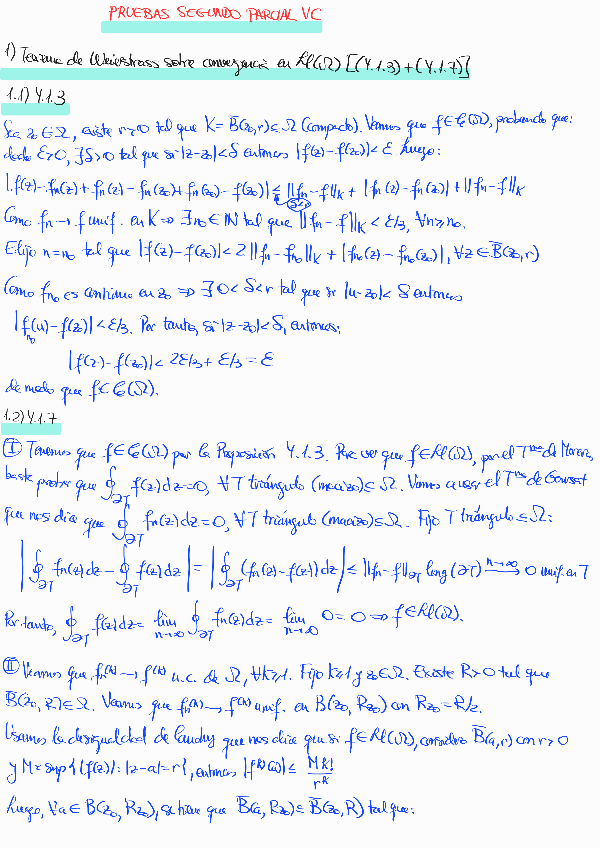 PRUEBAS SEGUNDO PARCIAL VC
1) Teorema de Weierstrass sobre convergencia en H(Ω) [(4.1.3)+(4.1.7)]
1.1) 4.1.3
Sea z₀∈Ω, existe r>0 tal que K = B̄(z₀,r)⊆Ω (compacto). Veamos que f∈C(Ω), probando que:
dado ε>0, ∃δ>0 tal que si |z-z₀|<δ entonces |f(z)-f(z₀)|<ε. Luego:
|f(z)-fₙ(z)+fₙ(z)-fₙ(z₀)+fₙ(z₀)-f(z₀)| ≤ ||fₙ-f||_K + |fₙ(z)-fₙ(z₀)| + ||fₙ-f||_K
Como fₙ→f unif. en K ⇒ ∃n₀∈ℕ tal que ||fₙ-f||_K < ε/3, ∀n≥n₀.
Elijo n=n₀ tal que |f(z)-f(z₀)| < 2||fₙ-fₙ₀||_K + |fₙ₀(z)-fₙ₀(z₀)|, ∀z∈B̄(z₀,r)
Como fₙ₀ es continua en z₀ ⇒ ∃ 0<δ<r tal que si |u-z₀|<δ entonces
|fₙ₀(u)-f(z₀)|<ε/3. Por tanto, si |z-z₀|<δ, entonces:
|f(z)-f(z₀)| < 2ε/3 + ε/3 = ε
de modo que f∈C(Ω).
1.2) 4.1.7
Ⓘ Tenemos que f∈C(Ω) por la Proposición 4.1.3. Para ver que f∈H(Ω), por el Tᵐᵃ de Morera,
basta probar que ∮_∂T f(z)dz=0, ∀T triángulo (macizo)⊆Ω. Vamos a usar el Tᵐᵃ de Goursat
que nos dice que ∮_∂T fₙ(z)dz=0, ∀T triángulo (macizo)⊆Ω. Fijo T triángulo⊆Ω:
|∮_∂T fₙ(z)dz - ∮_∂T f(z)dz| = |∮_∂T (fₙ(z)-f(z))dz| ≤ ||fₙ-f||_∂T long(∂T) →^{n→∞} 0 unif. en T
Por tanto, ∮_∂T f(z)dz = lim_{n→∞} ∮_∂T fₙ(z)dz = lim_{n→∞} 0 = 0 ⇒ f∈H(Ω).
Ⅱ Veamos que fₙ^(k) → f^(k) u.c. de Ω, ∀k≥1. Fijo k≥1 y z₀∈Ω. Existe R>0 tal que
B̄(z₀,R)⊆Ω. Veamos que fₙ^(k) → f^(k) unif. en B(z₀,R_z₀) con R_z₀=R/2.
Usamos la desigualdad de Cauchy que nos dice que si f∈H(Ω), considero B̄(a,r) con r>0
y M=sup{|f(z)|: |z-a|=r}, entonces |f^(k)(a)| ≤ M k!/r^k
Luego, ∀a∈B(z₀,R_z₀), se tiene que B̄(a,R_z₀)⊆B̄(z₀,R) tal que: